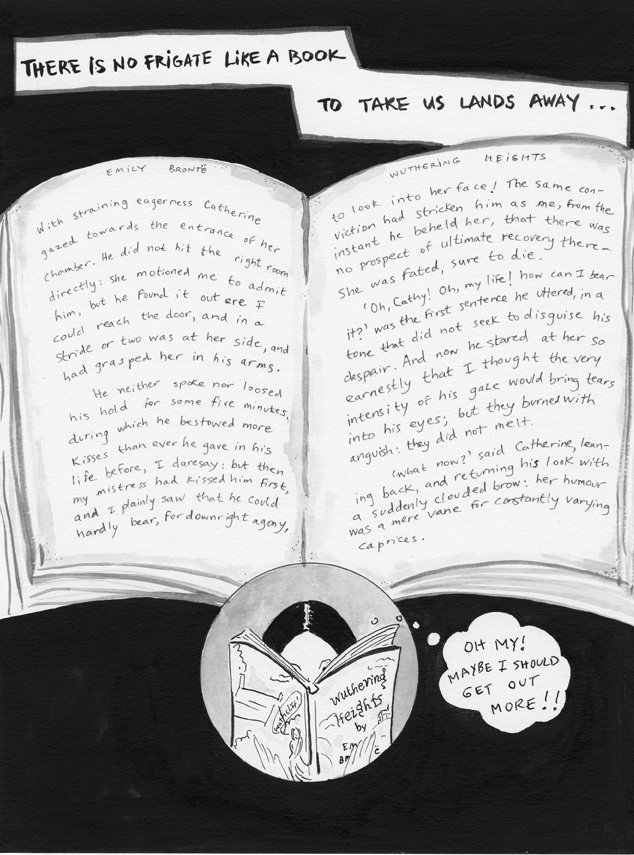 THERE IS NO FRIGATE LIKE A BOOK
TO TAKE US LANDS AWAY...
EMILY BRONTË
With straining eagerness Catherine
gazed towards the entrance of her
chamber. He did not hit the right room
directly: she motioned me to admit
him, but he found it out ere I
could reach the door, and in a
stride or two was at her side, and
had grasped her in his arms.
He neither spoke nor loosed
his hold for some five minutes,
during which he bestowed more
kisses than ever he gave in his
life before, I daresay: but then
my mistress had kissed him first,
and I plainly saw that he could
hardly bear, for downright agony,
WUTHERING HEIGHTS
to look into her face! The same con-
viction had stricken him as me, from the
instant he beheld her, that there was
no prospect of ultimate recovery there-
She was fated, sure to die.
'Oh, Cathy! Oh, my life! how can I bear
it?' was the first sentence he uttered, in a
tone that did not seek to disguise his
despair. And now he stared at her so
earnestly that I thought the very
intensity of his gaze would bring tears
into his eyes; but they burned with
anguish: they did not melt.
'What now?' said Catherine, lean-
ing back, and returning his look with
a suddenly clouded brow: her humour
was a mere vane for constantly varying
caprices.
Wuthering
Heights
by
OH MY!
MAYBE I SHOULD
GET OUT
MORE!!